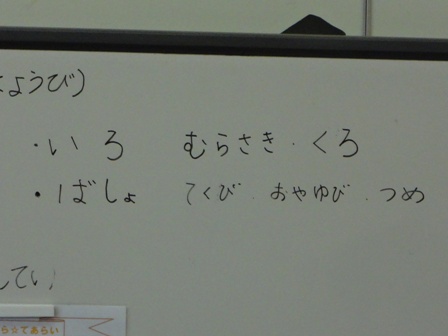 ようび)
・いろ むらさき・くろ
・ばしょ てくび・おやゆび・つめ
してい
ら☆てあらい